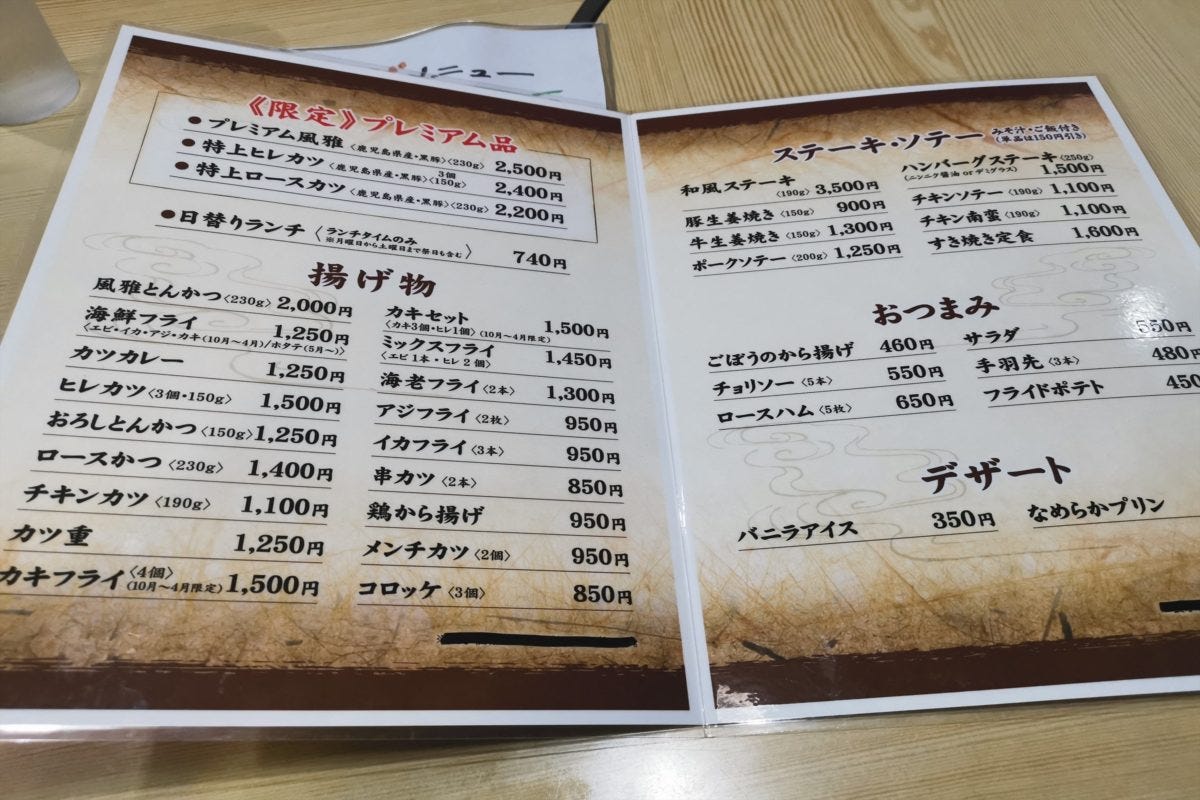 メニュー
《限定》プレミアム品
●プレミアム風雅〈鹿児島県産・黒豚〉〈230g〉 2,500円
●特上ヒレカツ〈鹿児島県産・黒豚〉3個〈150g〉 2,400円
●特上ロースカツ〈鹿児島県産・黒豚〉〈230g〉 2,200円
●日替りランチ〈ランチタイムのみ ※月曜日から土曜日まで祭日も含む〉 740円
揚げ物
風雅とんかつ〈230g〉 2,000円
海鮮フライ 1,250円
〈エビ・イカ・アジ・カキ(10月〜4月)/ホタテ(5月〜)〉
カツカレー 1,250円
ヒレカツ〈3個・150g〉 1,500円
おろしとんかつ〈150g〉 1,250円
ロースかつ〈230g〉 1,400円
チキンカツ〈190g〉 1,100円
カツ重 1,250円
カキフライ〈4個〉(10月〜4月限定) 1,500円
カキセット 1,500円
〈カキ3個・ヒレ1個〉(10月〜4月限定)
ミックスフライ 1,450円
〈エビ1本・ヒレ2個〉
海老フライ〈2本〉 1,300円
アジフライ〈2枚〉 950円
イカフライ〈3本〉 950円
串カツ〈2本〉 850円
鶏から揚げ 950円
メンチカツ〈2個〉 950円
コロッケ〈3個〉 850円
ステーキ・ソテー みそ汁・ご飯付き
(単品は150円引き)
和風ステーキ〈190g〉 3,500円
豚生姜焼き〈150g〉 900円
牛生姜焼き〈150g〉 1,300円
ポークソテー〈200g〉 1,250円
ハンバーグステーキ〈250g〉 1,500円
(ニンニク醤油 or デミグラス)
チキンソテー〈190g〉 1,100円
チキン南蛮〈190g〉 1,100円
すき焼き定食 1,600円
おつまみ
ごぼうのから揚げ 460円
チョリソー〈5本〉 550円
ロースハム〈5枚〉 650円
サラダ 550円
手羽先〈3本〉 480円
フライドポテト 450
デザート
バニラアイス 350円
なめらかプリン